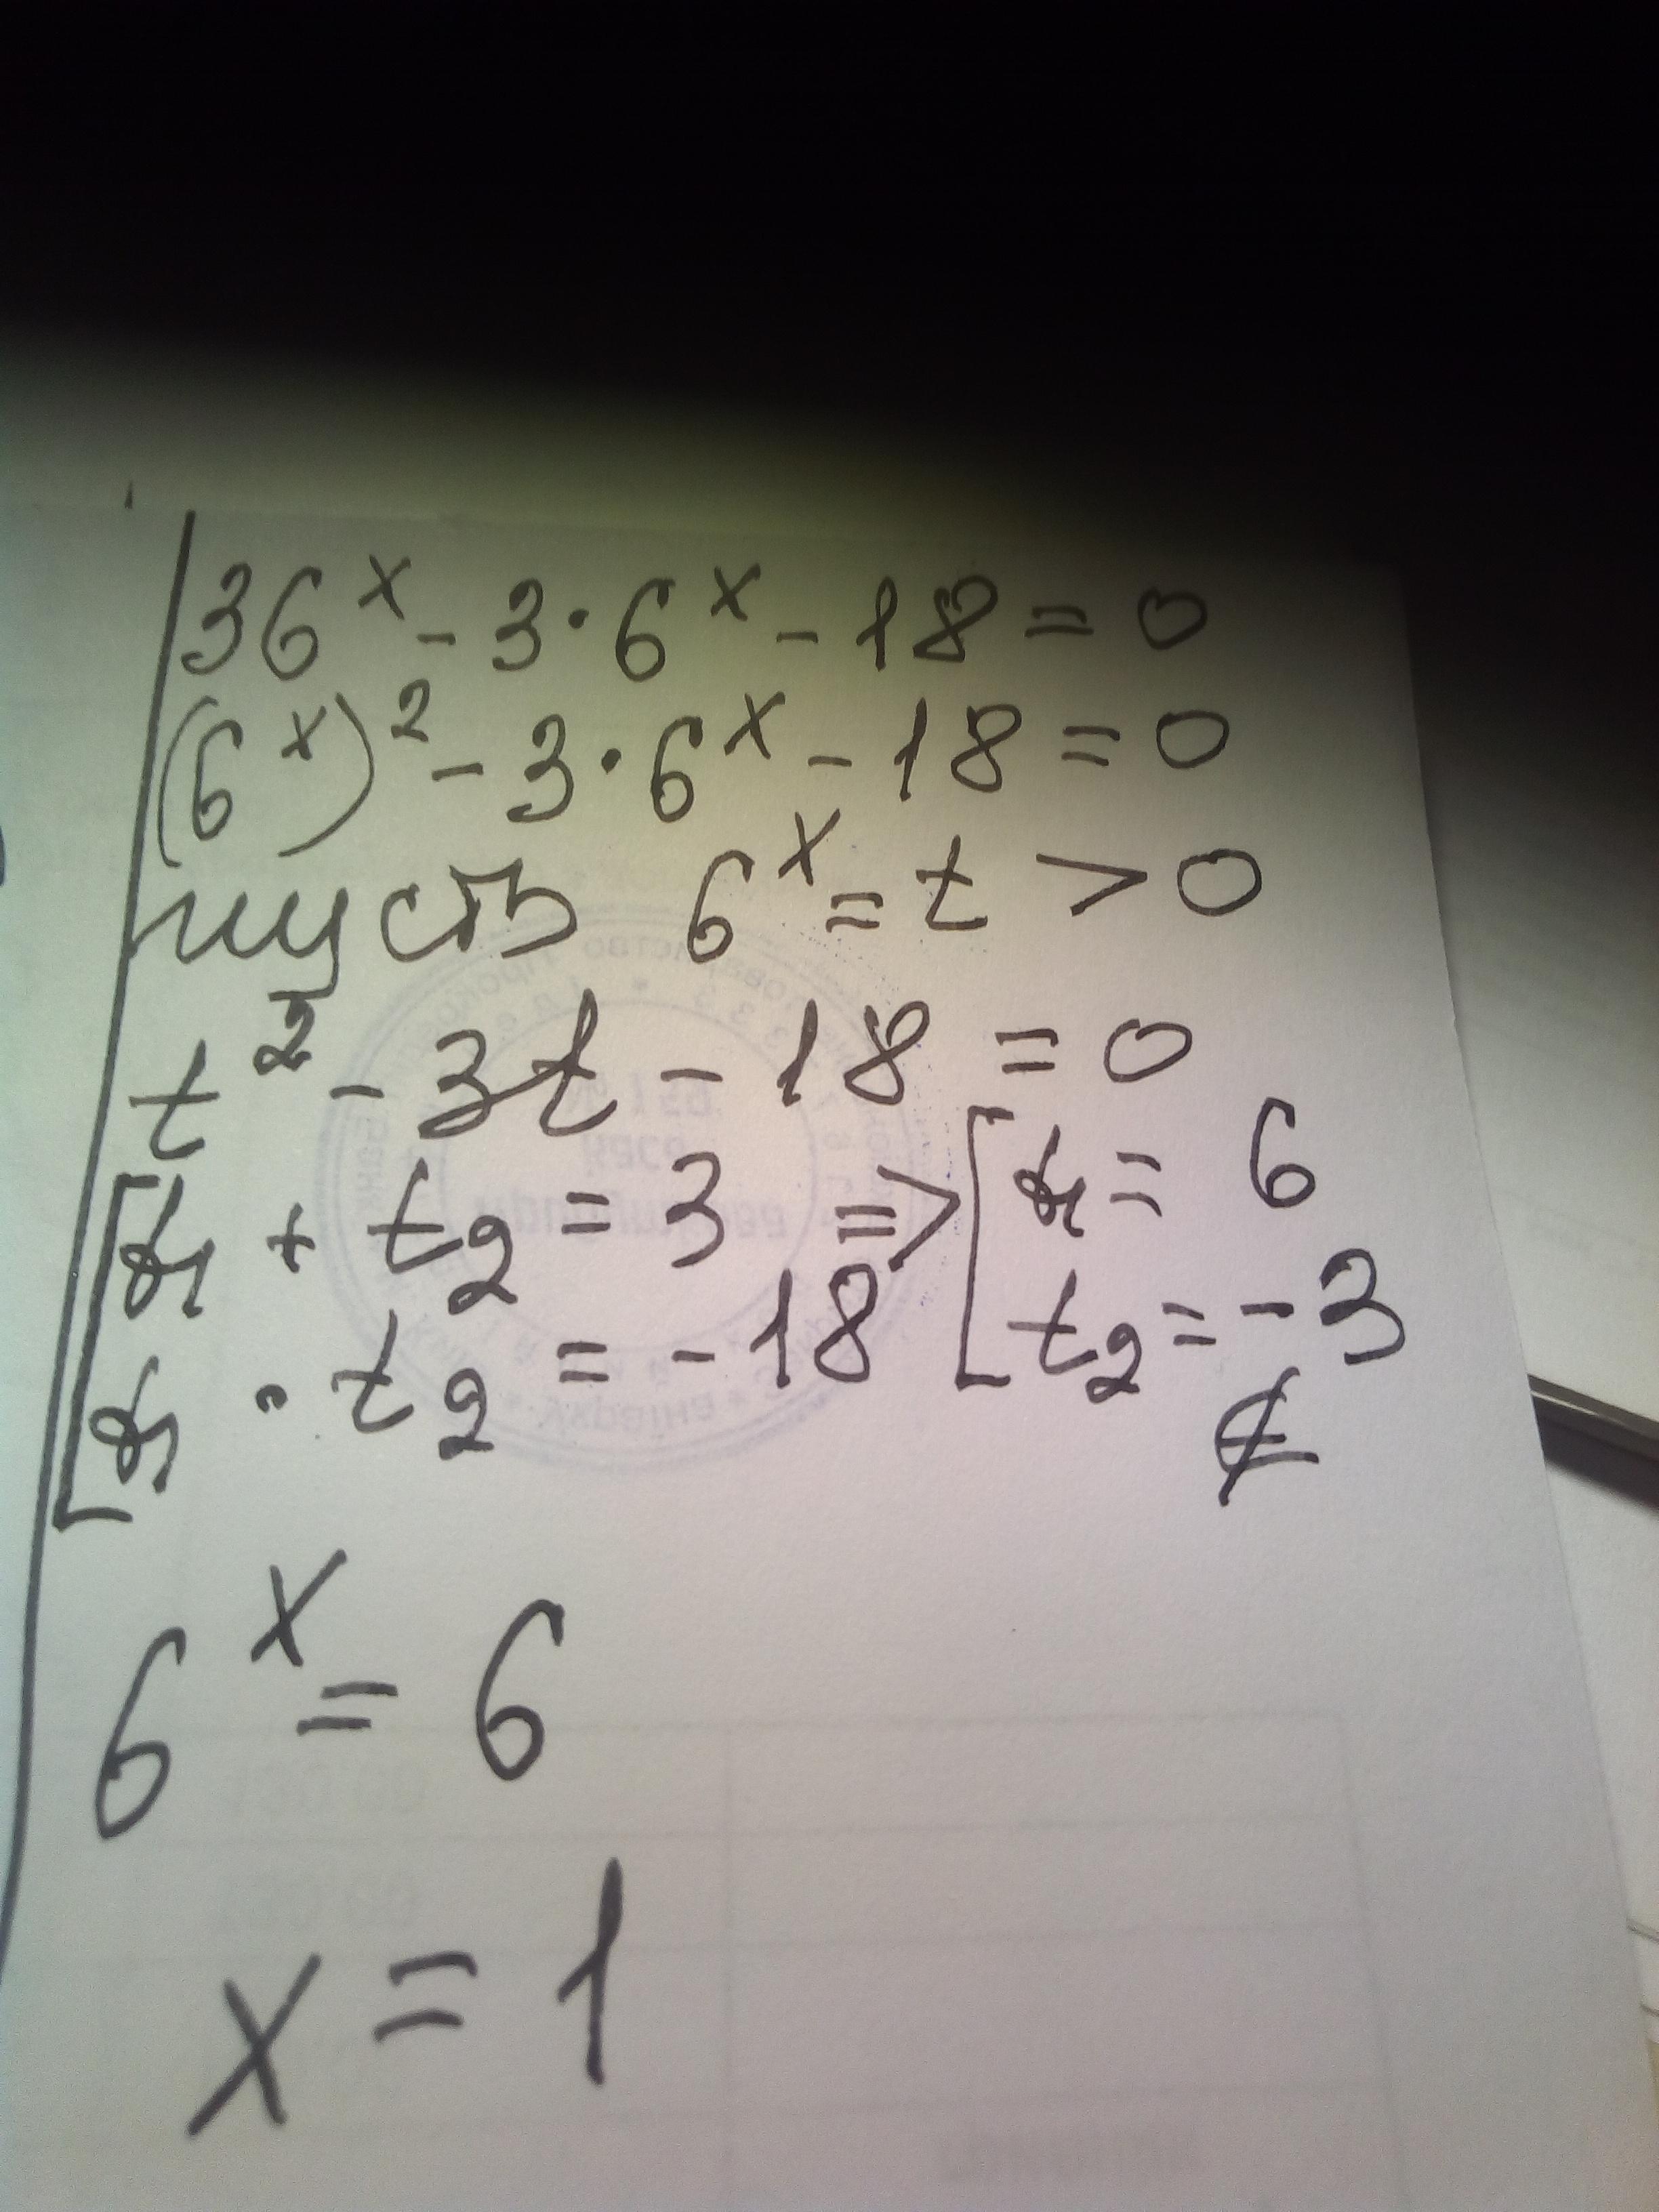 36^x - 3·6^x - 18 = 0
(6^x)^2 - 3·6^x - 18 = 0
пусть 6^x = t > 0
t^2 - 3t - 18 = 0
[t1 + t2 = 3 => [t1 = 6
t1 · t2 = -18 t2 = -3
∉
6^x = 6
x = 1